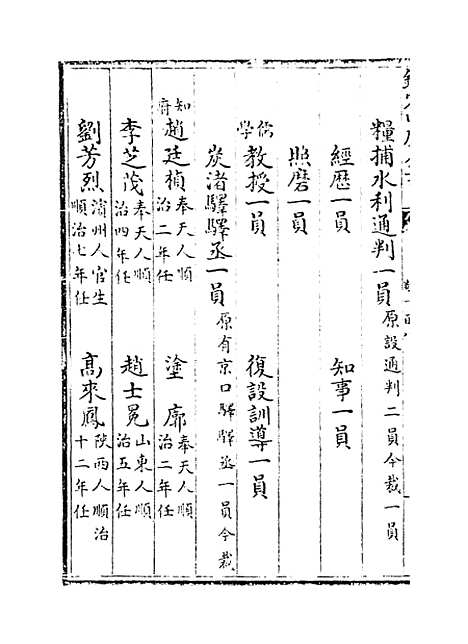 糧捕水利通判一員原設通判二員今裁一員
經歷一員 知事一員
照磨一員
儒學教授一員 復設訓導一員
炭渚驛驛丞一員原有京口驛驛丞一員今裁
知府趙廷楨奉天人順治二年任 塗廓奉天人順治二年任
李芝茂奉天人順治四年任 趙士冕山東人順治五年任
劉芳烈濱州人官生順治七年任 高來鳳陝西人順治十二年任